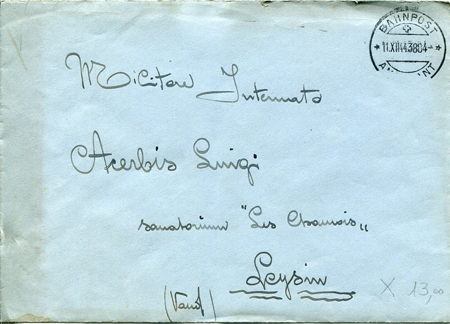 BAHNPOST
11.XII.44.3804
AMBULANT
Militare Internato
Acerbis Luigi
sanatorium "Les Chamois„
Leysin
(Vaud)
X 13,00